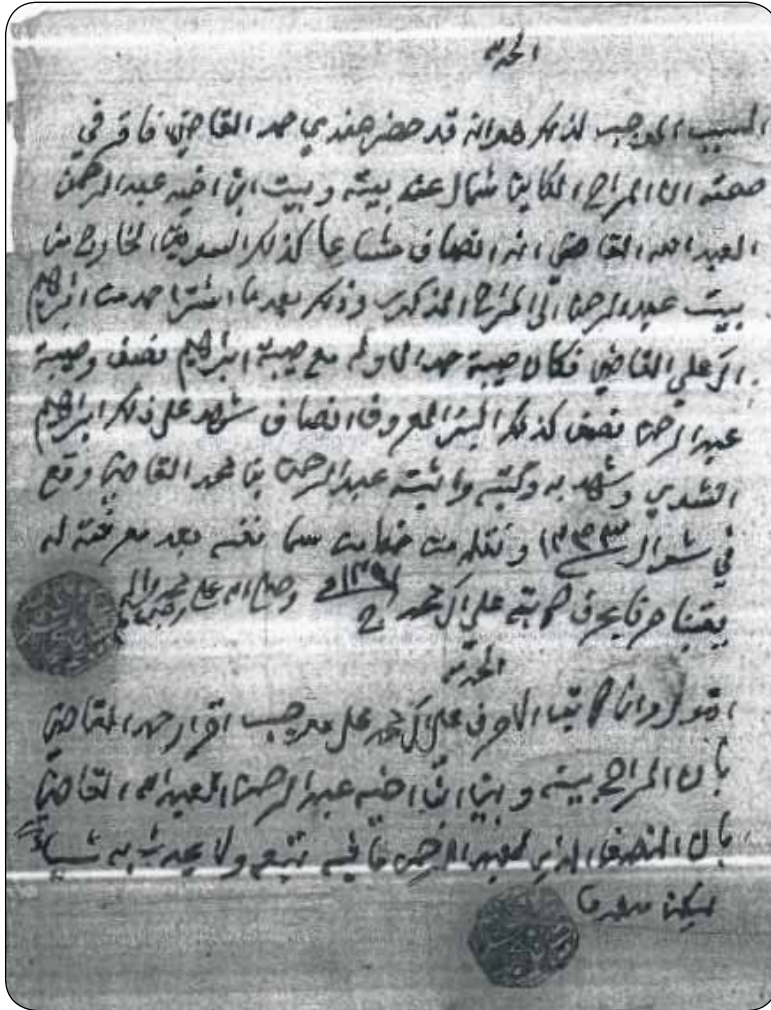 الحمد لله
السبب الموجب لذكر هو انه قد حضر عندي حمد القاضي فاقر في
صحته ان المراح الكاين شمال عند بيته وبيت ابن اخيه عبدالرحمن
العبدالله القاضي انه انصاف مشاعا كذلك السوق الخارج من
بيت عبدالرحمن الى المراح المذكور وذلك بعدما اشترا حمد من ابراهيم
العلي القاضي فكان صيبة حمد الاوله مع صيبة ابراهيم نصف وصيبة
عبدالرحمن نصف كذلك البئر المعروف انصاف شهد على ذلك ابراهيم
وشهد به وكتبه واثبته عبدالرحمن بن محمد القاضي وقع
في شوال ١٣٣٣ ونقله من خط من سما نفسه بعد معرفته له
يقينا حرفا بحرف كاتبه علي ال محمد
الحمد لله
اقول وانا كاتب الاحرف علي ال محمد على موجب اقرار حمد القاضي
بان المراح بينه وبين ابن اخيه عبدالرحمن العبدالله القاضي
بان النصف الذي لعبدالرحمن ولا يحدث به شيا
ليكن معلوما